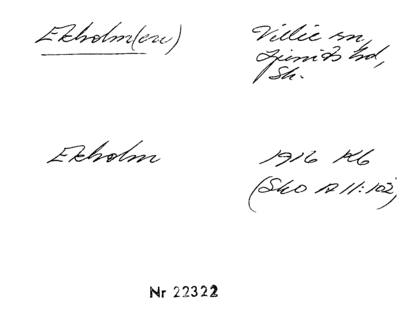 Ekholm(en)
Villie sn,
Ljunits hd,
Sk.
Ekholm
1916 Kb
(SkO A 11:102)
Nr 22322